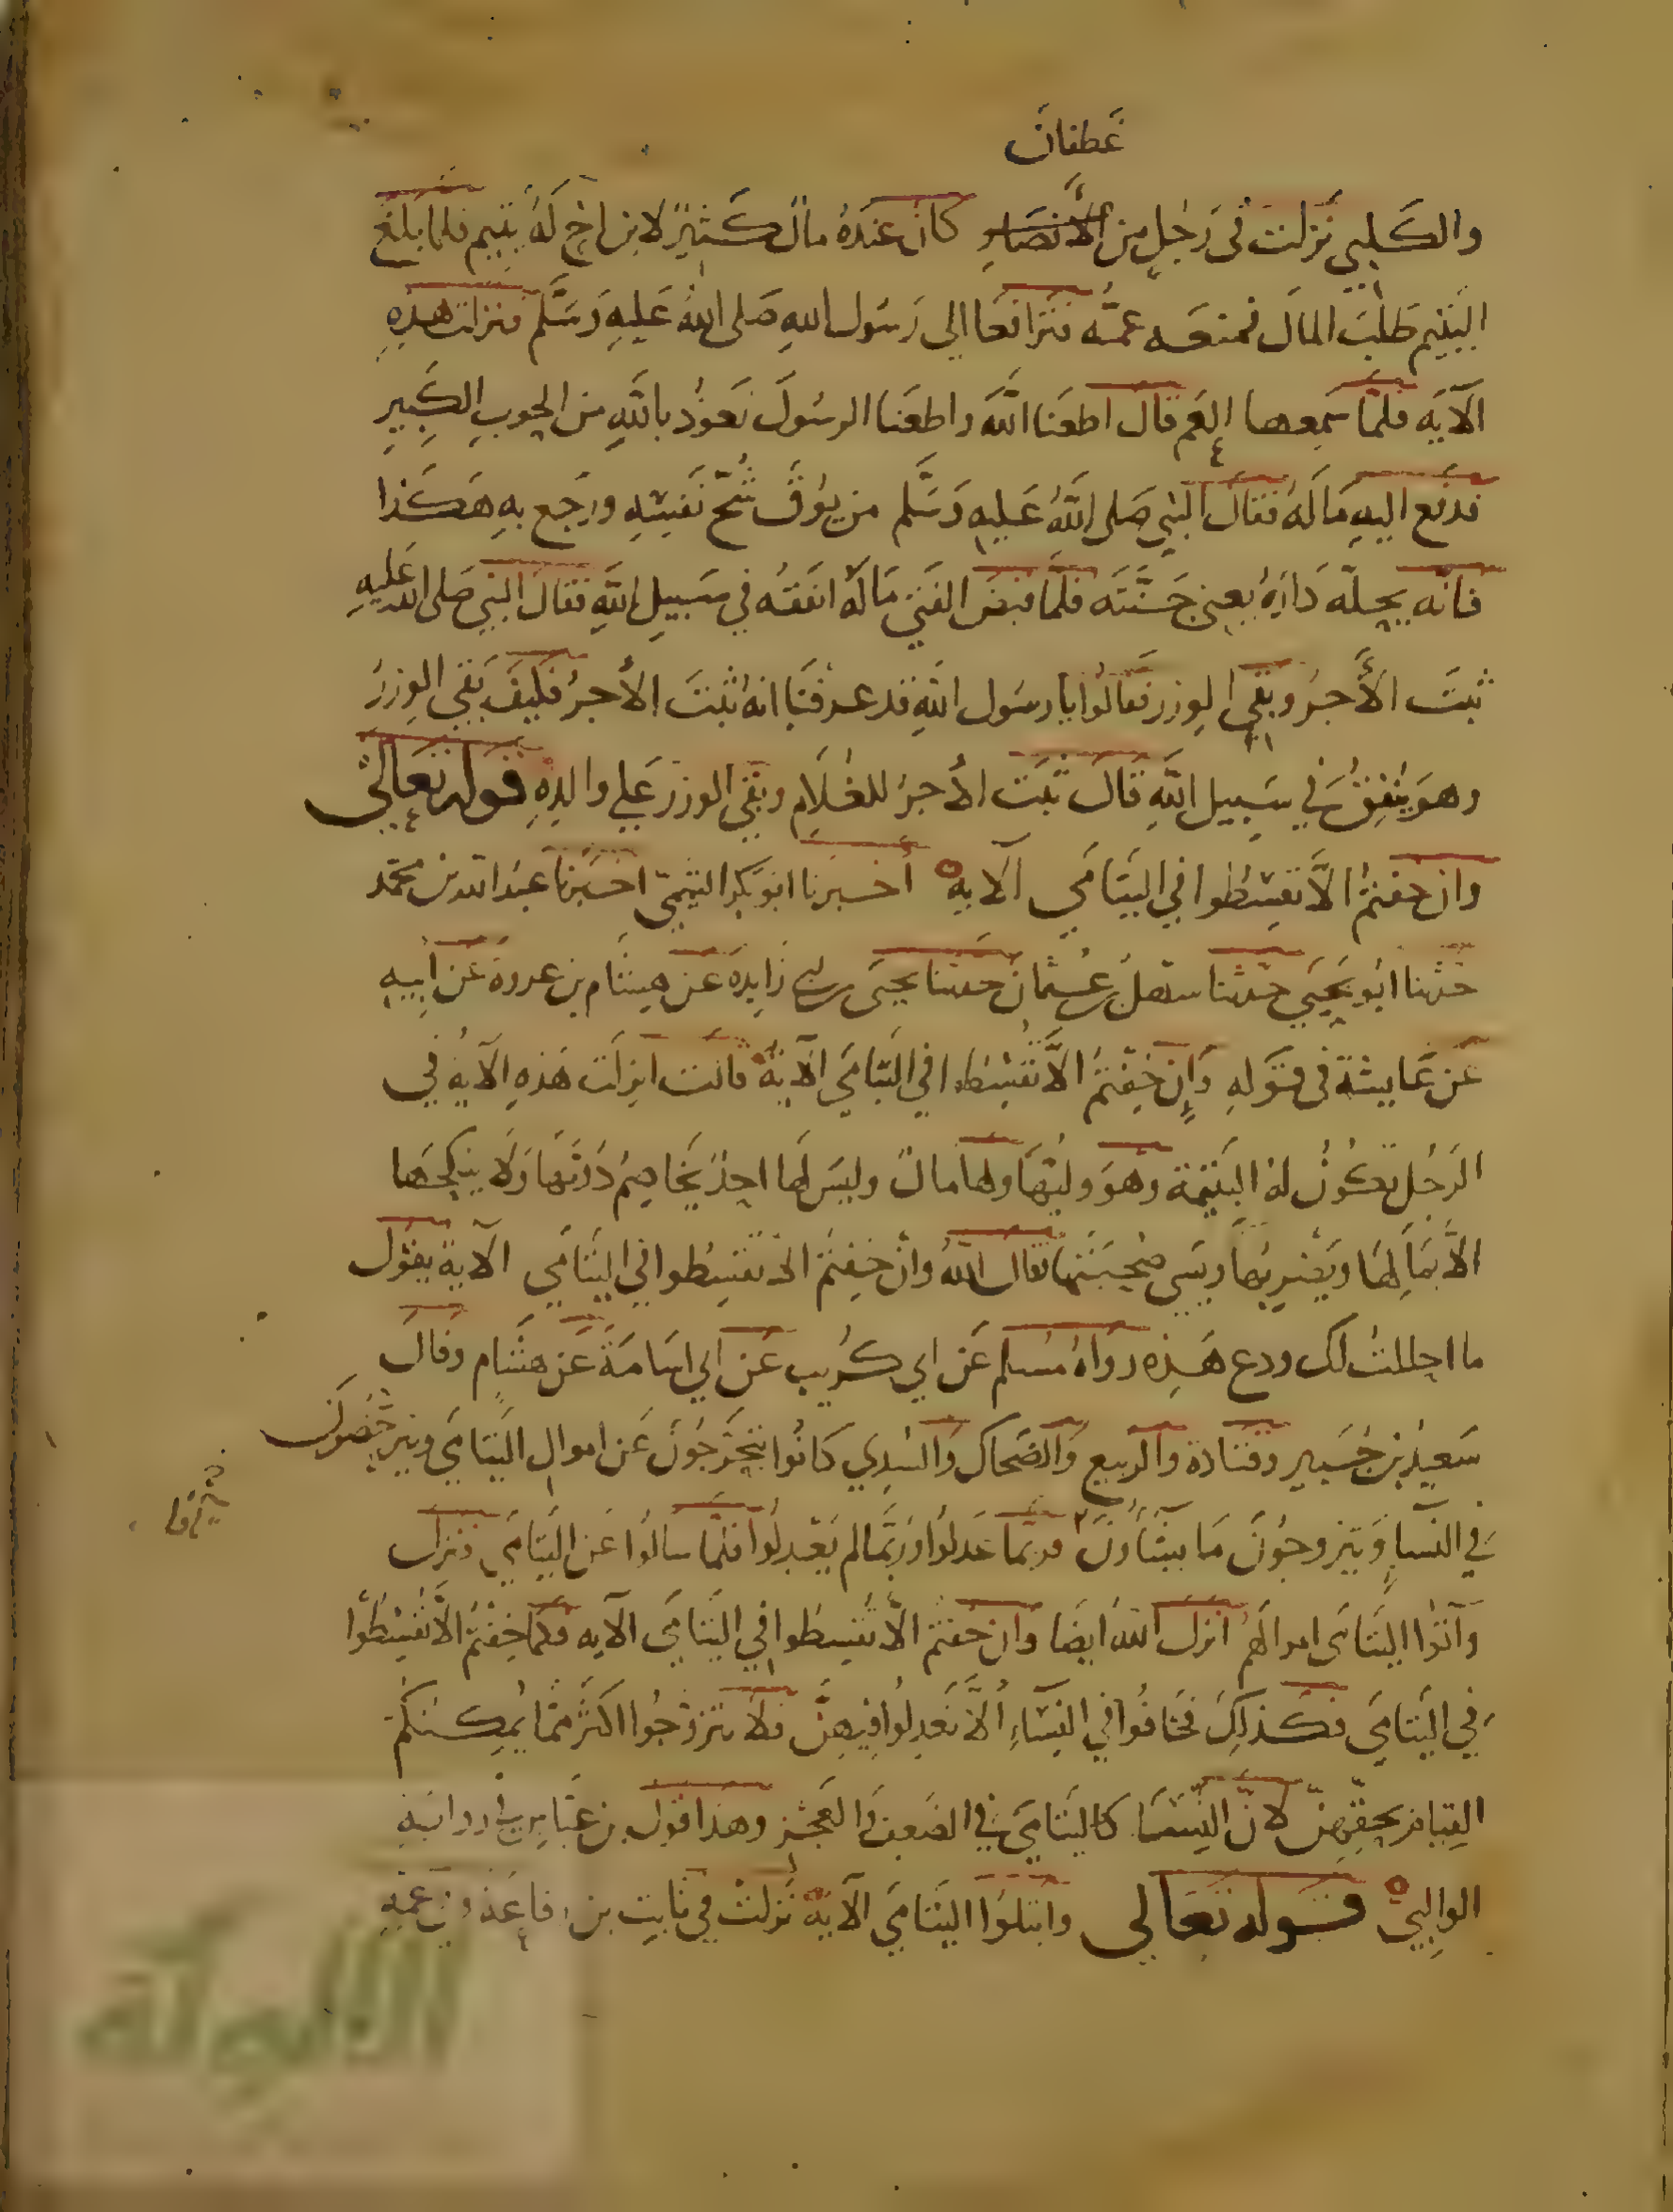 غطفان
والكلبي نزلت في رجل من الأنصار كان عنده مال كثير لابن اخ له يتيم فلما بلغ
اليتيم طلب المال فمنعه عمه فترافعا الى رسول الله صلى الله عليه وسلم فنزلت هذه
الآية فلما سمعها العم قال اطعنا الله واطعنا الرسول نعوذ بالله من الحوب الكبير
فدفع اليه ماله فقال النبي صلى الله عليه وسلم من يوق شح نفسه ورجع به هكذا
فانه يحل داره يعني جنته فلما قبض الفتى ماله انفقه في سبيل الله فقال النبي صلى الله عليه
ثبت الأجر وبقي الوزر فقالوا يا رسول الله قد عرفنا انه ثبت الأجر فكيف بقي الوزر
وهو ينفق في سبيل الله قال ثبت الأجر للغلام وبقي الوزر على والده قوله تعالى
وان خفتم الا تقسطوا في اليتامى الآيه أخبرنا ابو بكر التميمي اخبرنا عبد الله بن محمد
حدثنا ابو يحيى حدثنا سهل بن عثمان حدثنا يحيى بن ابي زايدة عن هشام بن عروة عن ابيه
عن عايشة في قوله وان خفتم الا تقسطوا في اليتامى الآية قالت انزلت هذه الآية في
الرجل تكون له اليتيمة وهو وليها ولها مال وليس لها احد يخاصم دونها ولا ينكحها
الا بمالها ويضربها ويسي صحبتها فقال الله وان خفتم الا تقسطوا في اليتامى الآية يقول
ما احللت لك ودع هذه رواه مسلم عن ابي كريب عن ابي اسامة عن هشام وقال
سعيد بن جبير وقتادة والربيع والضحاك والسدي كانوا يتحرجون عن اموال اليتامى ويترخصون
في النسآء ويتزوجون ما يشاؤن فربما عدلوا وربما لم يعدلوا فلما سالوا عن اليتامى فنزل
وآتوا اليتامى اموالهم انزل الله ايضا وان خفتم الا تقسطوا في اليتامى الآيه فكما خفتم الا تقسطوا
في اليتامى فكذلك فخافوا في النساء ألا تعدلوا فيهن فلا تتزوجوا اكثر مما يمكنكم
القيام بحقهن لان النسا كاليتامى في الضعف والعجز وهذا قول بن عباس في رواية
الوالبي قوله تعالى وابتلوا اليتامى الآية نزلت في ثابت بن رفاعة وفي عمه
الألوكة